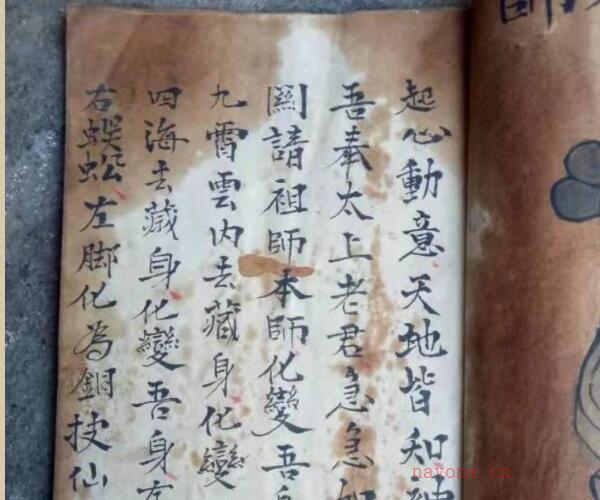 起心動意天地皆知
吾奉太上老君急急如
關請祖師本師化變吾身
九霄雲内去藏身化變
四海去藏身化變吾身左
右蜈蚣左脚化為銅挍仙
nayona.cn